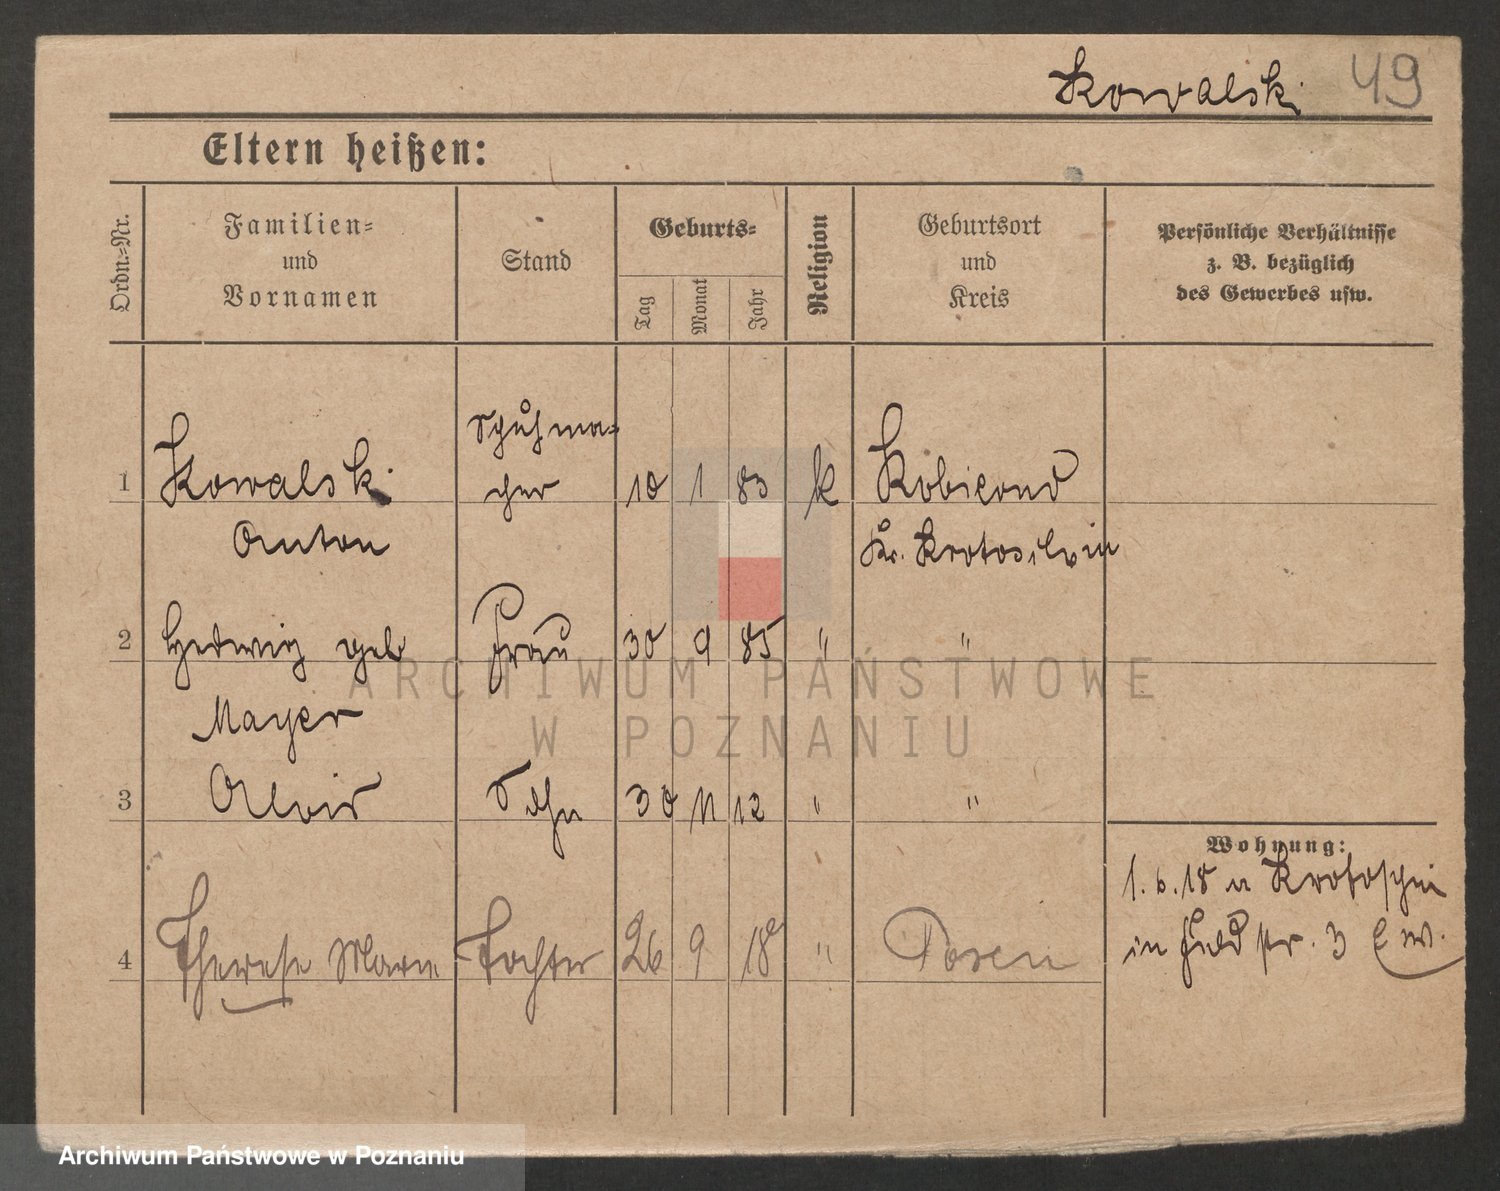 Kowalski 49
Eltern heißen:
Ordn.-Nr.
Familien-
und
Vornamen
Stand
Geburts-
Tag
Monat
Jahr
Religion
Geburtsort
und
Kreis
Persönliche Verhältnisse
z. B. bezüglich
des Gewerbes usw.
Schuhma-
1 Kowalski cher 10 1 83 k
Anton Kr.
2 Hedwig geb Frau 30 9 85 " "
Mayer
3 Alois Sohn 30 11 12 " "
Wohnung:
1.6.18 n Krotoschin
4 Therese Marie Tochter 26 9 18 " Posen
in Feldstr. 3
ARCHIWUM PAŃSTWOWE
W POZNANIU
Archiwum Państwowe w Poznaniu